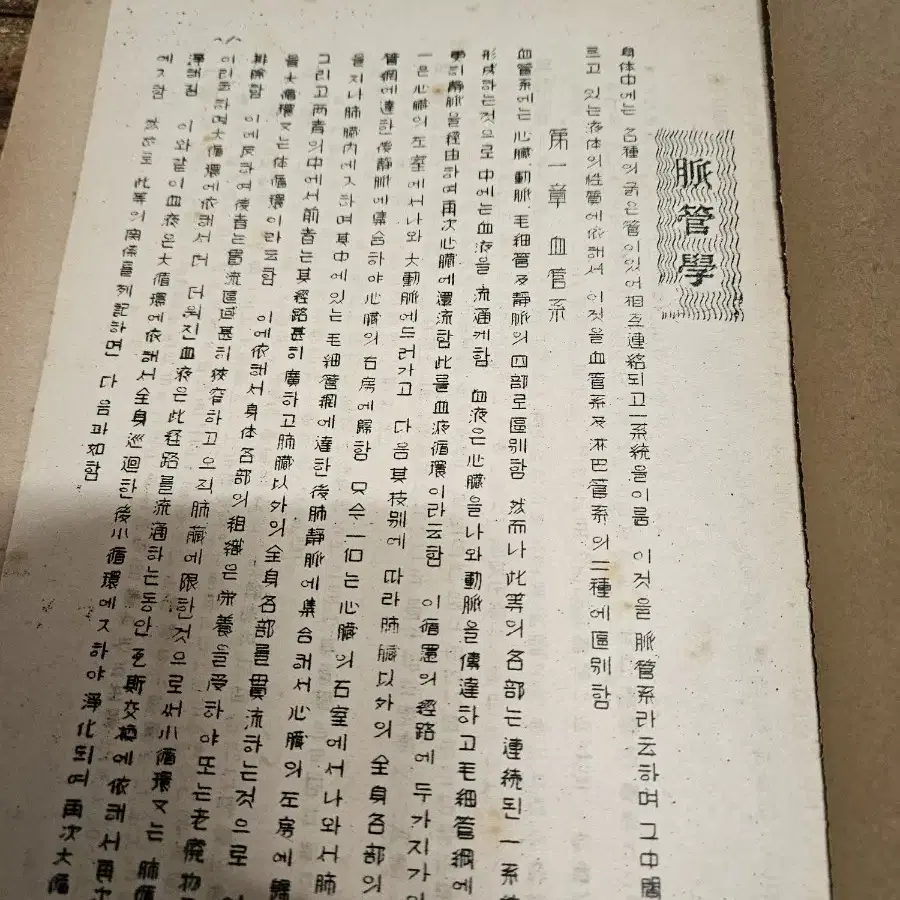 脈管學
身体中에는 各種의 굵은管이있어相互連絡되고一系統을이룸 이것을 脈管系라云하며 그中間
르고 있는液体의性質에依해서 이것을血管系及淋巴管系의二種에區別함
第一章 血管系
血管系에는 心臟 動脈 毛細管及靜脈의四部로區別함 然而나 此等의 各部는 連続된 一系
形成하는것으로 中에는血液을 流通케함 血液은心臟을나와動脈을傳達하고毛細管網에
更히靜脈을經由하여再次心臟에還流함此를血液循環이라云함 이循環의經路에 두가지가
一은心臟의左室에서나와大動脈에드러가고 다음其枝別에 따라肺臟以外의 全身各部의
管網에達한後靜脈에集合하야心臟의右房에歸함 又 一은心臟의右室에서나와서肺
을지나肺臟內에入하며其中에있는毛細管網에達한後肺靜脈에集合해서心臟의左房에歸
그리고両者의中에서前者는其經路甚히廣하고肺臟以外의全身各部를貫流하는것으로
을大循環又는体循環이라云함 이에依해서身体各部의組織은栄養을受하야또는老廢物
排除함 이에反하여後者는貫流區域甚히狹窄하고으직肺臟에限한것으로써小循環又는肺循
이러하며大循環에依해서더더워진血液은此経路를流通하는동안瓦斯交換에依해서再次
淨해짐 이와같이血液은大循環에依해서全身巡迴한後小循環에入하야淨化되여再次大循
에入함 故로 此等의関係를列記하면 다음과如함